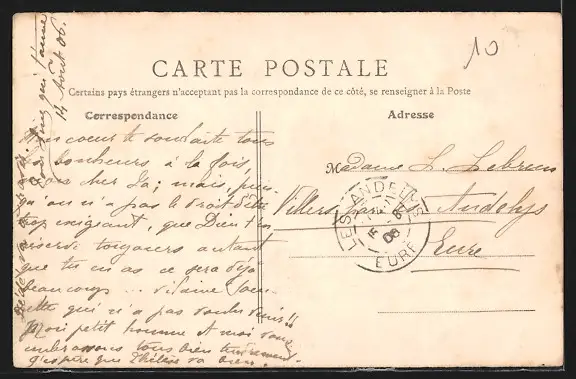 10
CARTE POSTALE
Certains pays étrangers n'acceptant pas la correspondance de ce côté, se renseigner à la Poste
Correspondance
Adresse
14 Août 06.
qui t'aime
Mon cœur te souhaite tous
bonheurs à la fois,
cher ; mais, puis
qu'on n'a pas le droit d'être
trop exigeant, que Dieu t'en
réserve toujours autant
que tu en as ce sera déjà
beaucoup ... vilaine
qui n'a pas voulu venir!!
Mon petit homme et moi vous
embrassons tous bien tendrement.
J'espère que va bien.
Madame L. Lebrun
Villers par Andelys
Eure
LES ANDELYS
06
EURE